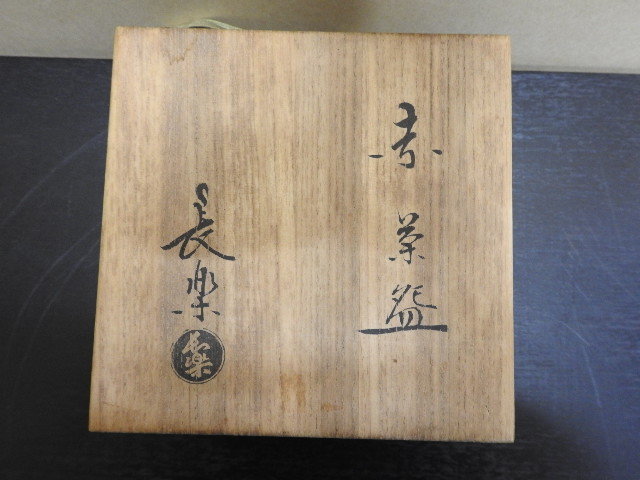 赤茶盌
長楽
楽